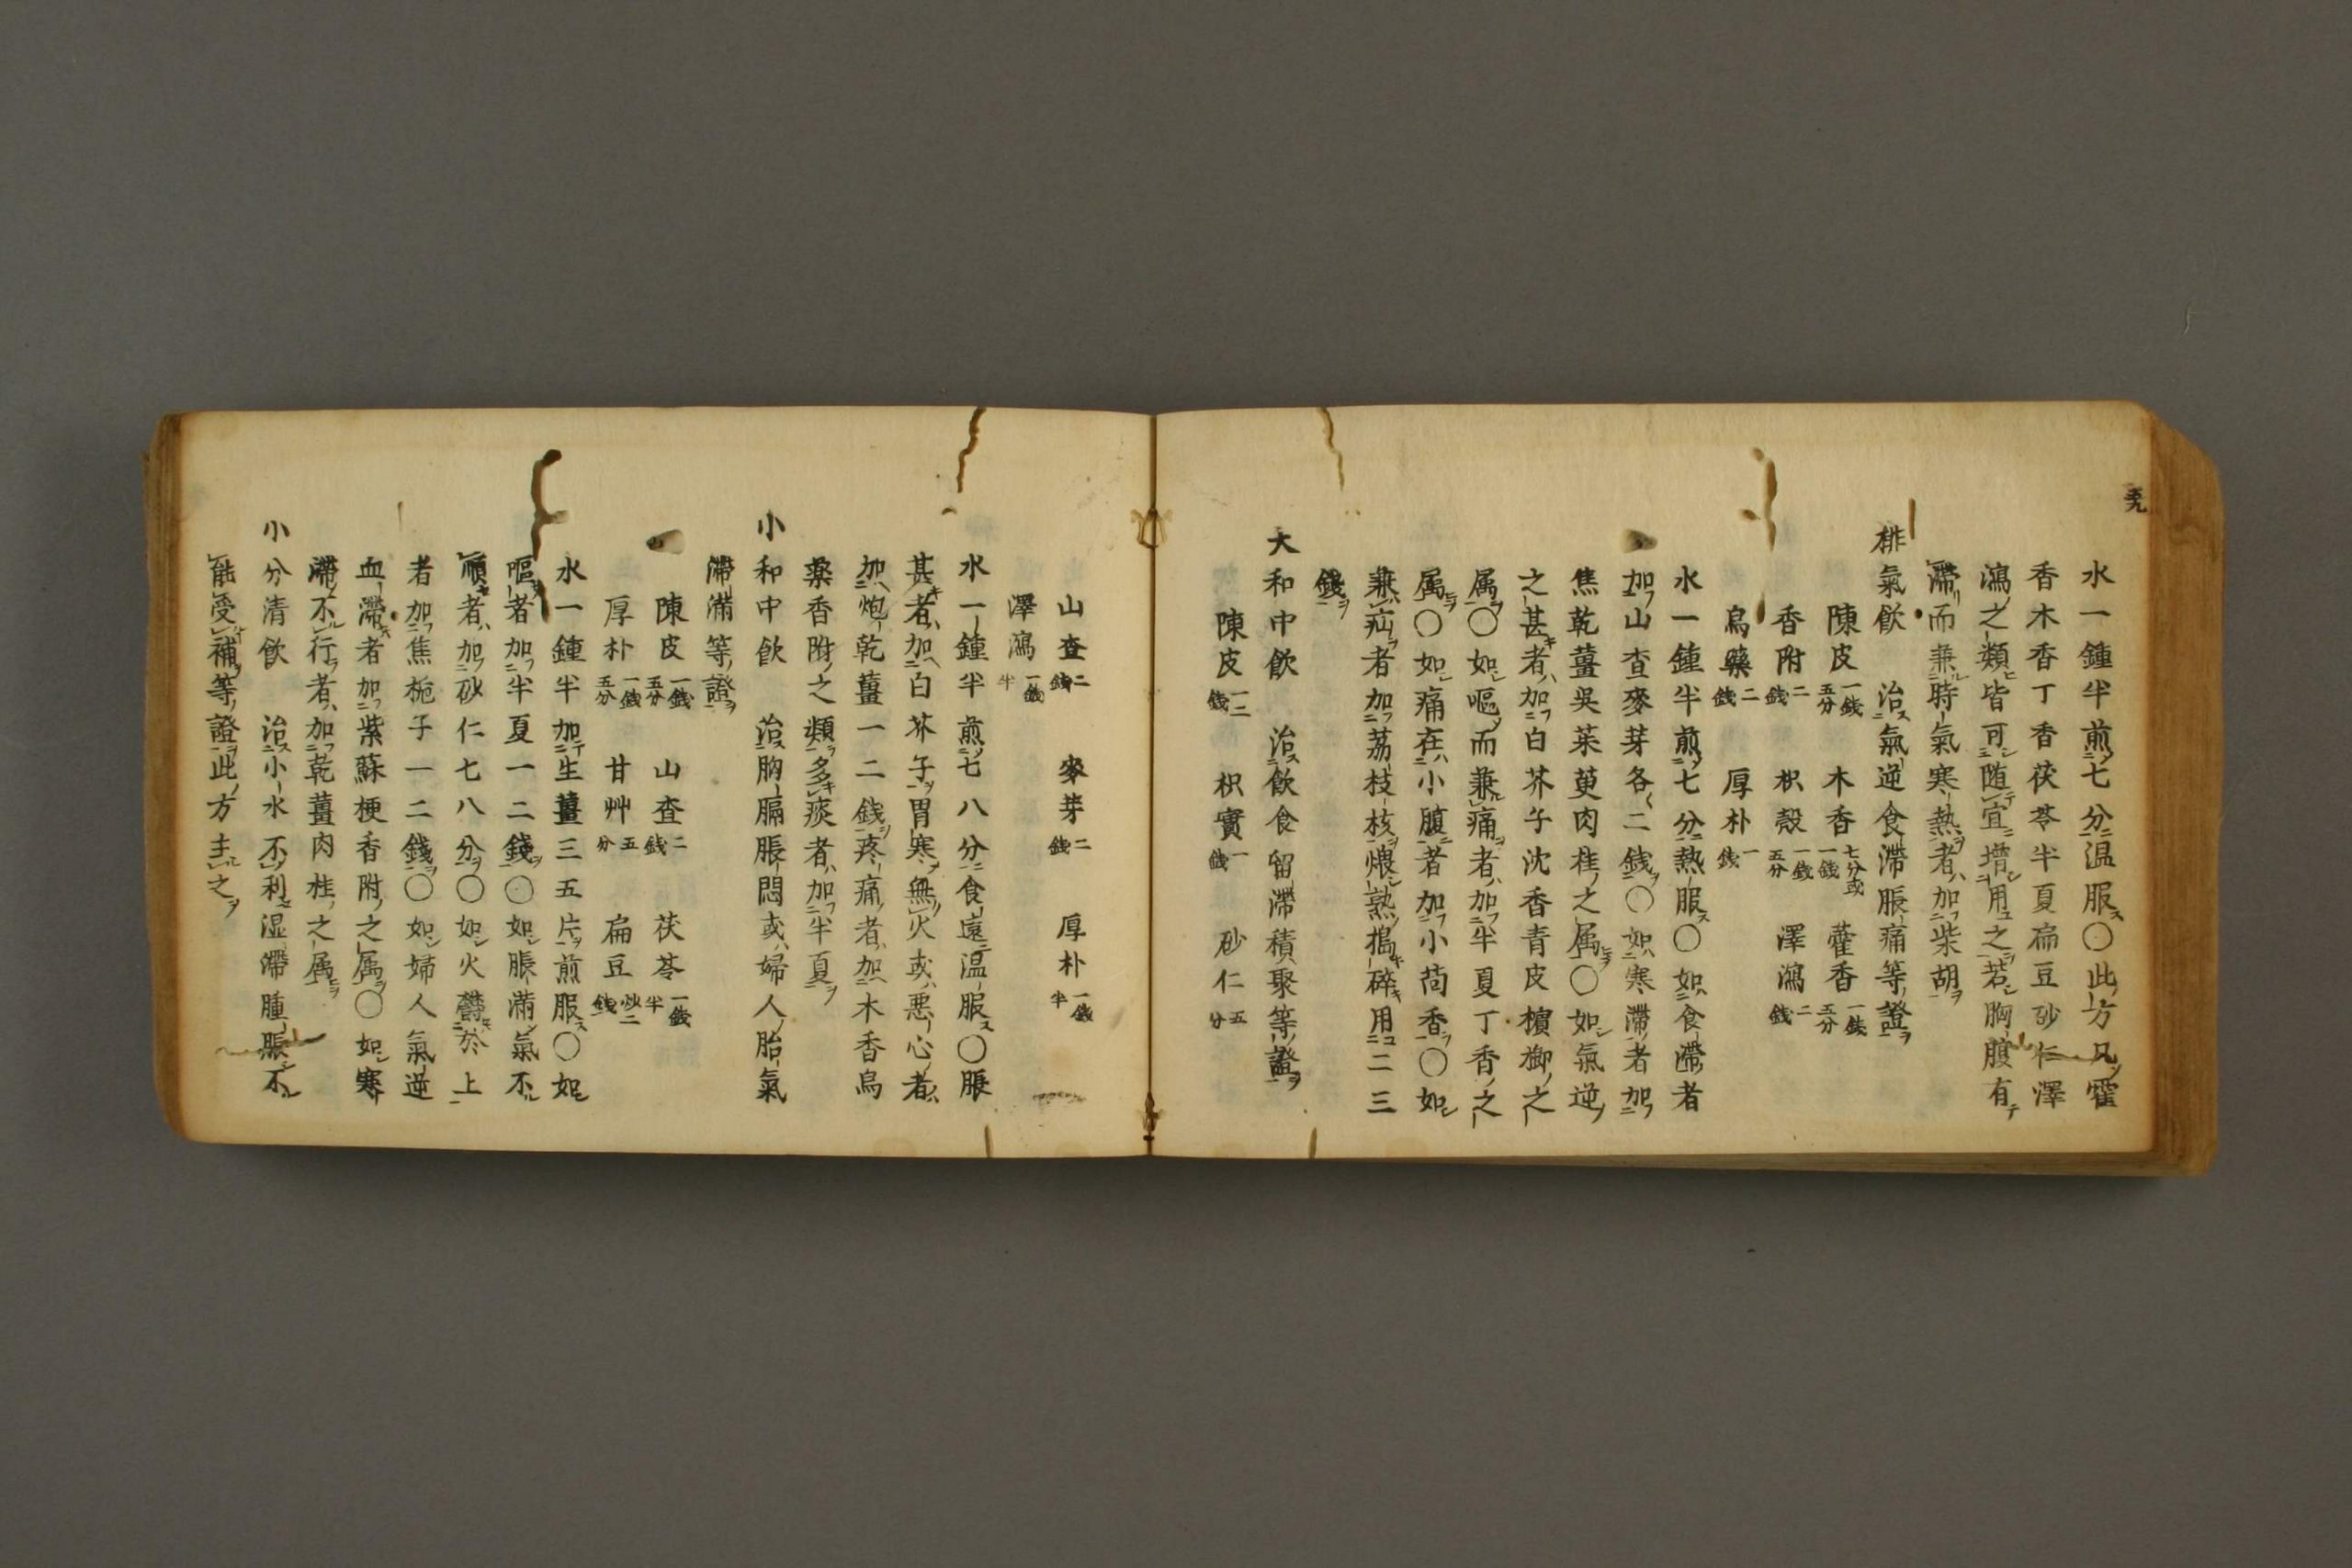 水一鍾半煎七分温服〇此方凡藿
香木香丁香茯苓半夏扁豆砂仁澤
瀉之類皆可随宜増用之若胸腹有
滞而兼時氣寒熱者加柴胡
排氣飲 治氣逆食滞脹痛等證
陳皮一銭五分 木香七分或一銭 藿香一銭五分
香附二銭 枳殻一銭五分 澤瀉二銭
烏藥二銭 厚朴一銭
水一鍾半煎七分熱服〇如食滞者
加山査麥芽各二銭〇如寒滞者加
焦乾薑吳茱萸肉桂之属〇如氣逆
之甚者加白芥子沈香青皮檳榔之
属〇如嘔而兼痛者加半夏丁香之
属〇如痛在小腹者加小茴香〇如
兼疝者加荔枝核煨熟搗碎用二三
銭
大和中飲 治飲食留滞積聚等證
陳皮一二銭 枳實一銭 砂仁五分
山査二銭 麥芽二銭 厚朴一銭半
澤瀉一銭半
水一鍾半煎七八分食遠温服〇脹
甚者加白芥子胃寒無火或悪心者
加炮乾薑一二銭疼痛者加木香烏
藥香附之類多痰者加半夏
小和中飲 治胸膈脹悶或婦人胎氣
滞滿等證
陳皮一銭五分 山査二銭 茯苓一銭半
厚朴一銭五分 甘艸五分 扁豆炒二銭
水一鍾半加生薑三五片煎服〇如
嘔者加半夏一二銭〇如脹滿氣不
順者加砂仁七八分〇如火欝於上
者加焦梔子一二銭〇如婦人氣逆
血滞者加紫蘇梗香附之属〇如寒
滞不行者加乾薑肉桂之属
小分清飲 治小水不利湿滞腫脹不
能受補等證此方主之